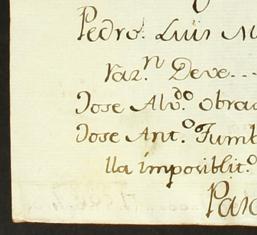 Pedro Luis
Var.n Deve...
Jose Alv.do obra
Jose Ant.o Fumb
lla imposiblit.o
Pas